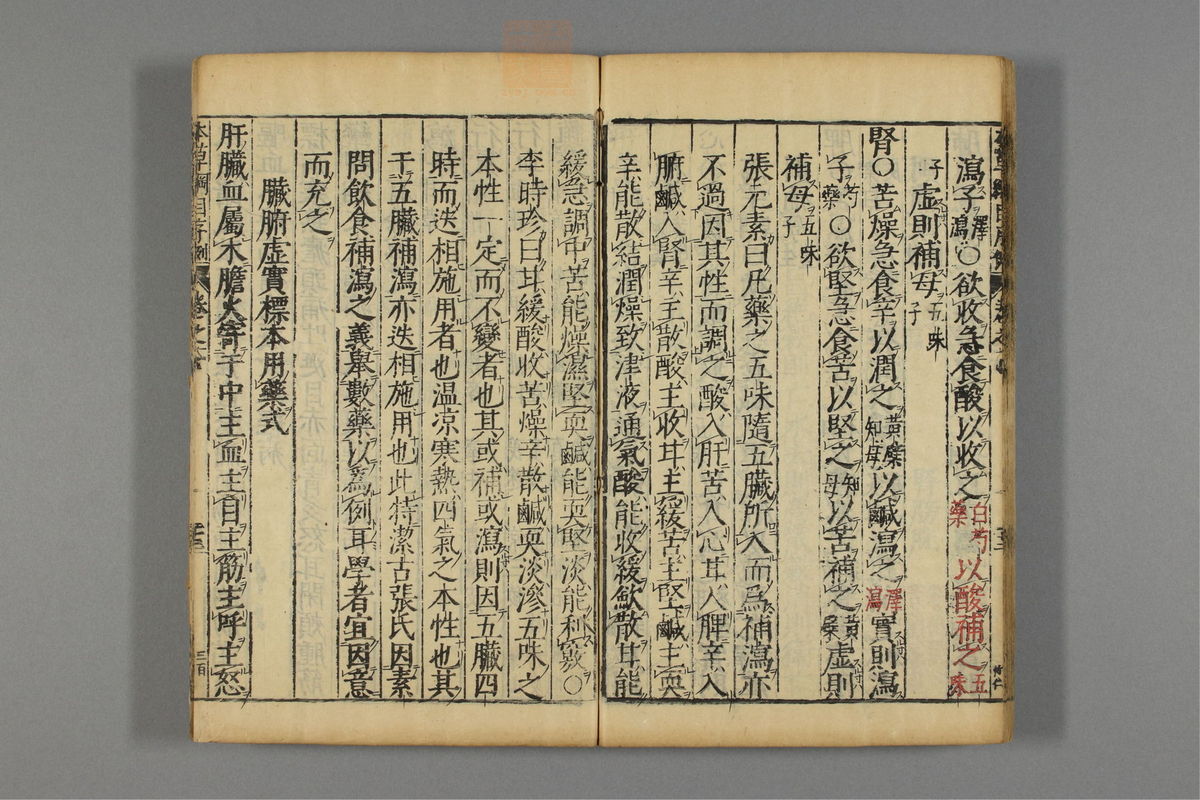 瀉子澤瀉○欲收急食酸以收之白芍藥以酸補之五味
子虛則補母五味子
腎○苦燥急食辛以潤之黃蘗知母以鹹瀉之澤瀉實則瀉
子芍藥○欲堅急食苦以堅之知母以苦補之黃蘗虛則
補母五味子
張元素曰凡藥之五味隨五臟所入而爲補瀉亦
不過因其性而調之酸入肝苦入心甘入脾辛入
肺鹹入腎辛主散酸主收甘主緩苦主堅鹹主耎
辛能散結潤燥致津液通氣酸能收緩斂散甘能
緩急調中苦能燥濕堅耎鹹能耎堅淡能利竅○
李時珍曰甘緩酸收苦燥辛散鹹耎淡滲五味之
本性一定而不變者也其或補或瀉則因五臟四
時而迭相施用者也溫凉寒熱四氣之本性也其
于五臟補瀉亦迭相施用也此特潔古張氏因素
問飲食補瀉之義舉數藥以爲例耳學者宜因意
而充之
臟腑虛實標本用藥式
肝臟血屬木膽火寄于中主血主目主筋主呼主怒
本草綱目序例